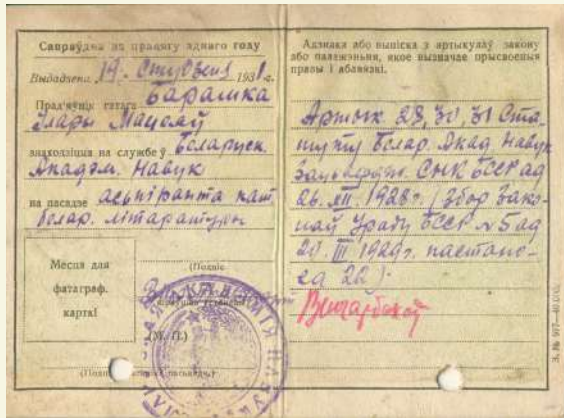 Сапраўдна на працягу аднаго году
Выдадзена 19. Студзеня 1931 г.
Прад'яўнік гэтага Барашка
Ілары Мацвеяў
знаходзіцца на службе ў Беларуск.
Акадэм. Навук
на пасадзе аспіранта кат.
белар. літаратуры
Месца для
фатаграф.
карткі
(Подпіс
(М. П.)
Адзнака або выпіска з артыкулаў закону
або палажэньня, якое вызначае прысвоеныя
правы і абавязкі.
Артык. 28, 30, 31 Ста-
туту Белар. Акад. Навук
Зацьвердж. СНК БССР ад
26. XII. 1928 г. (Збор Зако-
наў Ураду БССР № 5 ад
20 III 1929 г. пастано-
ва 22).